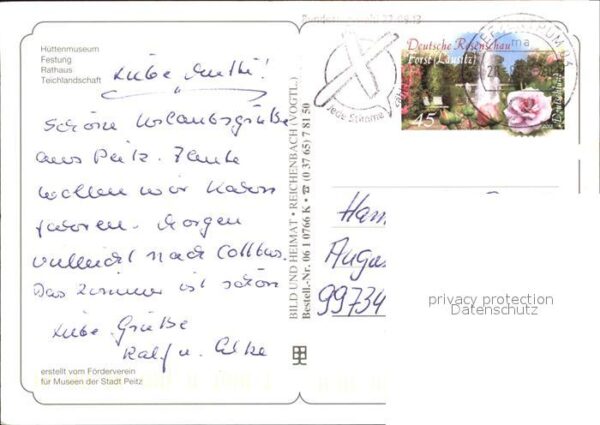 Hüttenmuseum
Festung
Rathaus
Teichlandschaft
Liebe Mutti!
Schöne Urlaubsgrüße
aus Peitz. Heute
wollen wir Kahn
fahren. Morgen
vielleicht nach Cottbus.
Das Zimmer ist schön
Liebe Grüße
Ralf u. Elke
erstellt vom Förderverein
für Museen der Stadt Peitz
BILD UND HEIMAT • REICHENBACH (VOGTL.)
Bestell.-Nr. 06 1 0766 K • ☎ (0 37 65) 7 81 50
jede Stimme
Deutsche Rosenschau
Forst (Lausitz)
45
Deutschland
Augus
99734
privacy protection
Datenschutz